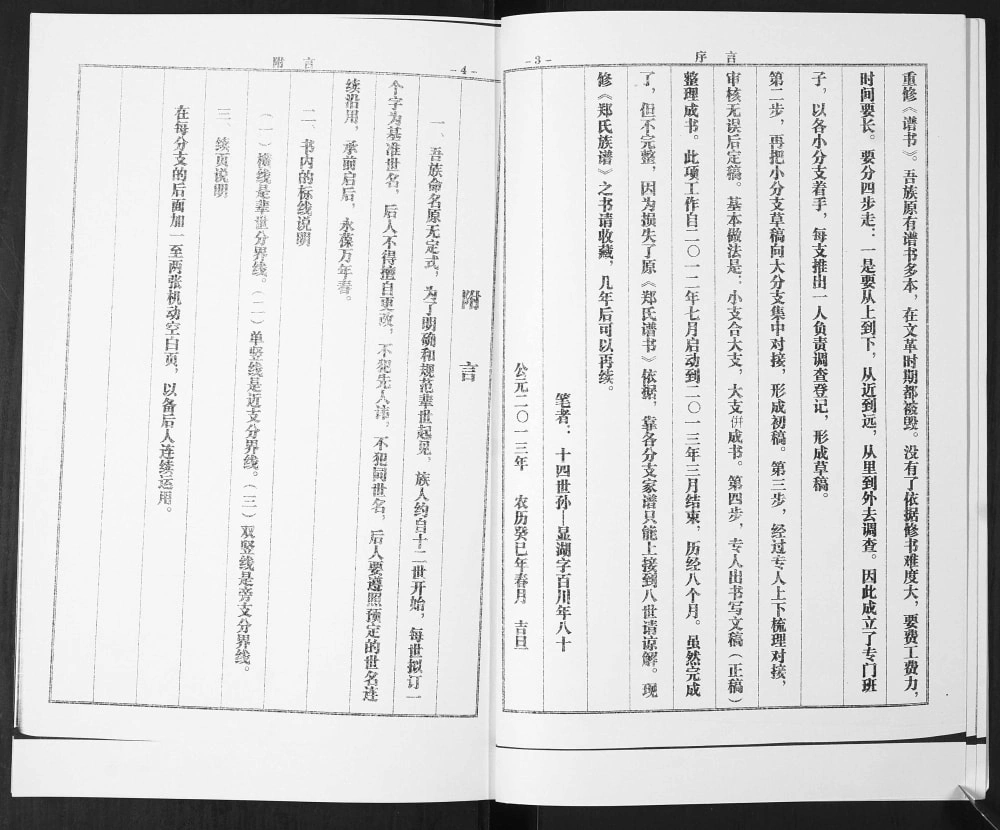 序言
-3-
重修《谱书》。吾族原有谱书多本，在文革时期都被毁。没有了依据修书难度大，要费工费力，
时间要长。要分四步走：一是要从上到下，从近到远，从里到外去调查。因此成立了专门班
子，以各小分支着手，每支推出一人负责调查登记，形成草稿。
第二步，再把小分支草稿向大分支集中对接，形成初稿。第三步，经过专人上下梳理对接，
审核无误后定稿。基本做法是：小支合大支，大支併成书。第四步，专人出书写文稿（正稿）
整理成书。此项工作自二〇一二年七月启动到二〇一三年三月结束，历经八个月。虽然完成
了，但不完整，因为损失了原《郑氏谱书》依据，靠各分支家谱只能上接到八世请谅解。现
修《郑氏族谱》之书请收藏，几年后可以再续。
笔者：十四世孙—显湖字百川年八十
公元二〇一三年 农历癸巳年春月 吉旦
附言
-4-
附言
一、吾族命名原无定式，为了明确和规范辈世起见，族人约自十二世开始，每世拟订一
个字为基准世名，后人不得擅自更改，不犯先人讳，不犯同世名，后人要遵照预定的世名连
续沿用，承前启后，永葆万年春。
二、书内的标线说明
（一）横线是辈世分界线。（二）单竖线是近支分界线。（三）双竖线是旁支分界线。
三、续页说明
在每分支的后面加一至两张机动空白页，以备后人连续运用。